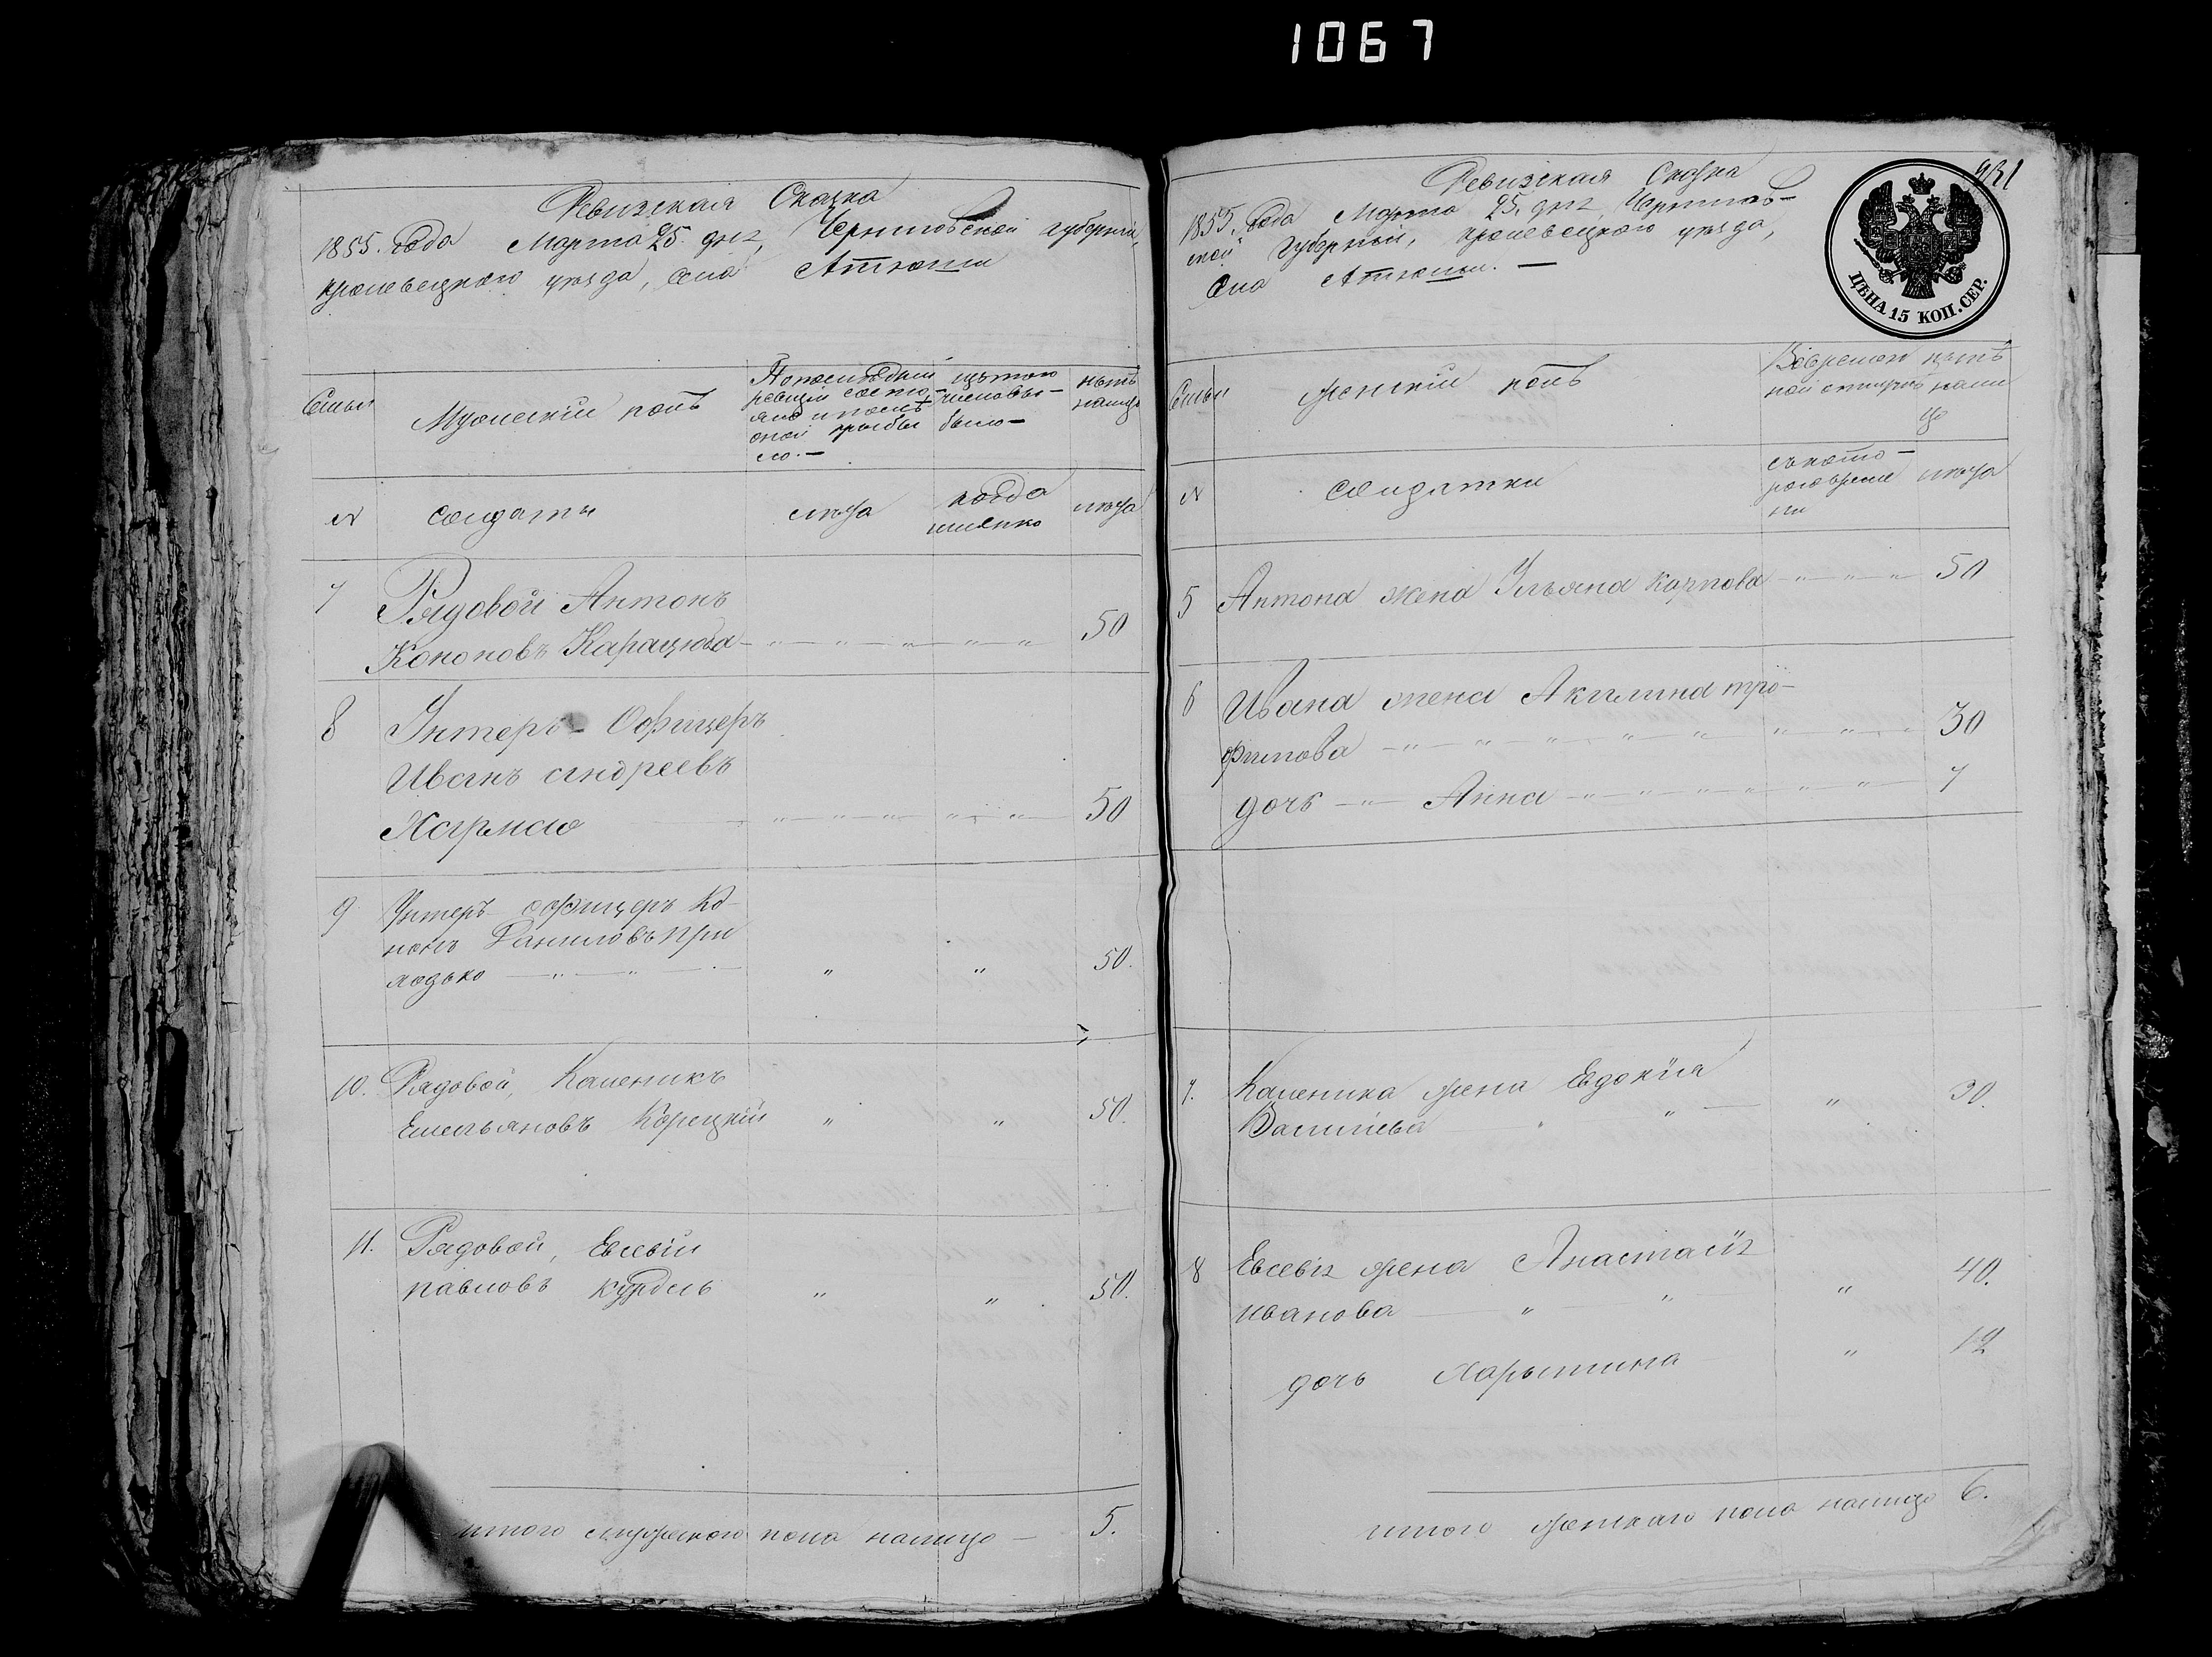 1067
Ревизская Сказка
1855. Года Марта 25. дня, Черниговской губерніи,
кролевецкого уезда, села Атюши
Семьи
Мужескій полъ
По последней ревизіи состояло и после оной прибыло.—
изъ того числа выбыло—
ныне налицо
№
солдаты
лета
когда именно
лета
7 Рядовой Антонъ
Кононовъ Карацюба 50
8 Унтеръ-Офицеръ
Иванъ андреевъ
50
9 Унтеръ-офицеръ Ко-
нонъ Даниловъ при
ходько 50.
10. Рядовой, Каленикъ
Емельяновъ Корецкій " " 50.
11. Рядовой, Евсевій
павловъ курдель " " 50.
итого мужского пола налицо — 5.
Ревизская Сказка
1855. Года Марта 25. дня, Чернигов-
ской Губерніи, кролевецкого уезда,
Села Атюши. —
ЦѢНА 15 КОП. СЕР.
Семьи
Женскій полъ
Вовременной отлучке
ныне налицо
№
солдатки
съ котораго времени
лета
5 Антона жена Ульяна карпова 50
6 Ивана жена Акилина тро-
фимова 30
дочь Анна 7
7. Каленика жена Евдокія
Василіева " 30.
8 Евсевія жена Анастасія
иванова " 40.
дочь Харытина " 12
итого женскаго пола налицо 6.